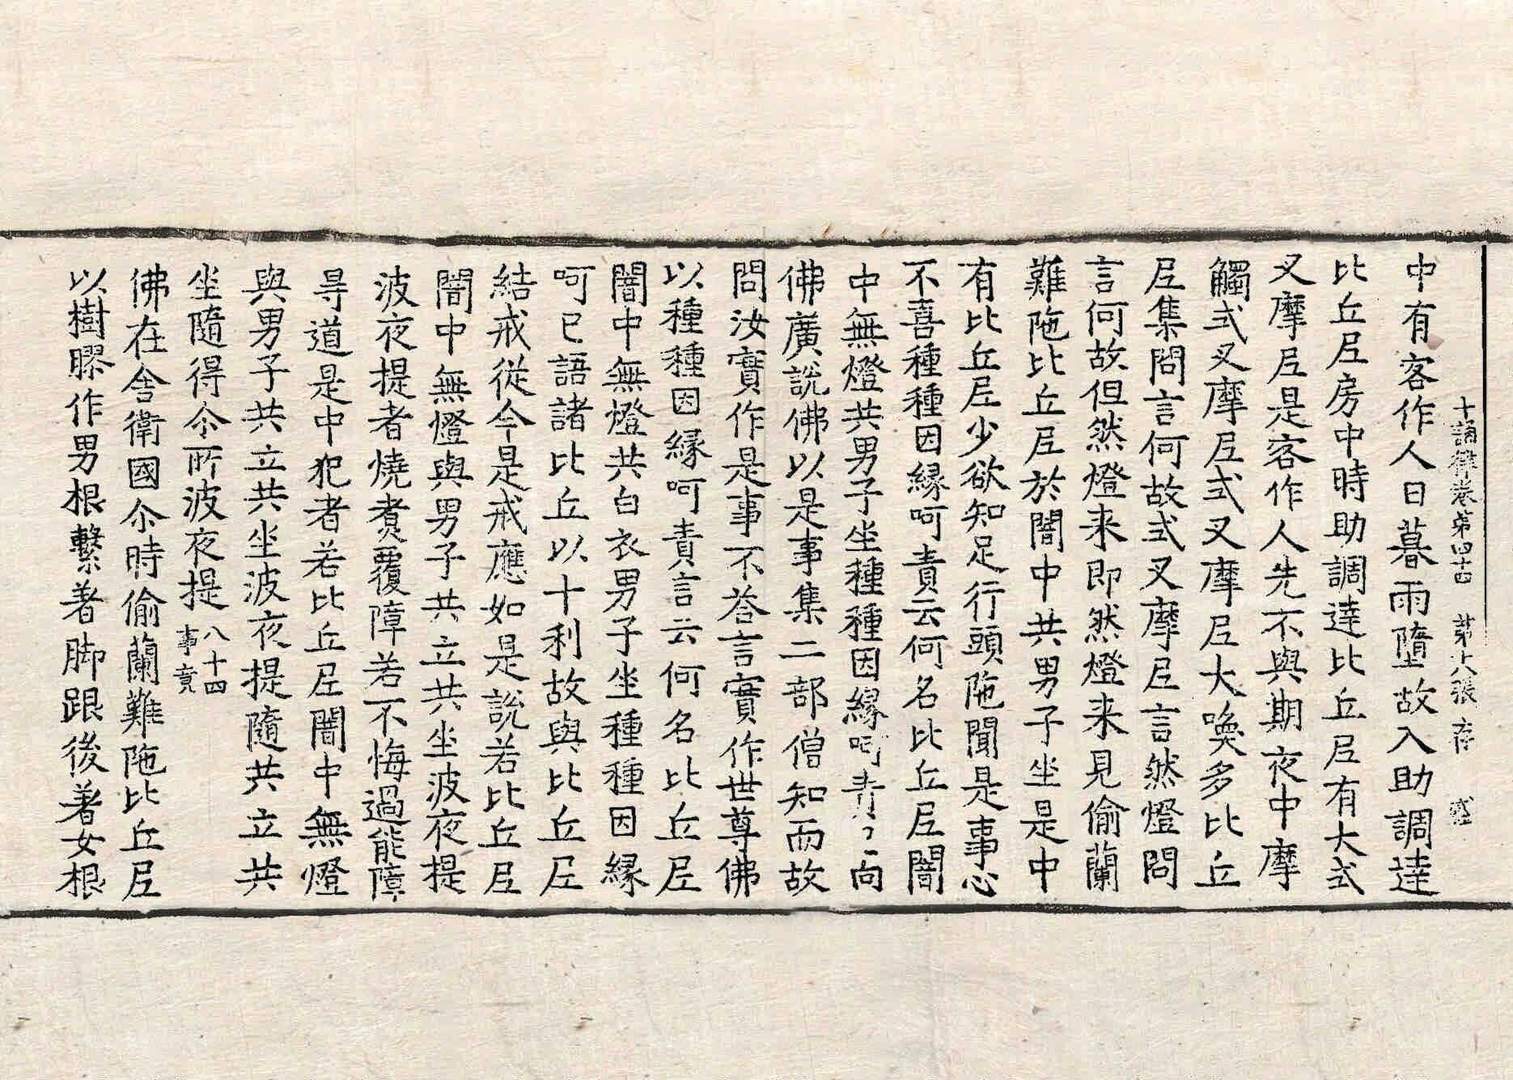 十誦律卷第四十四 第十八張 存
中有客作人日暮雨墮故入助調達
比丘尼房中時助調達比丘尼有大式
叉摩尼是客作人先不與期夜中摩
觸式叉摩尼式叉摩尼大喚多比丘
尼集問言何故式叉摩尼言然燈問
言何故但然燈来即然燈来見偷蘭
難陁比丘尼於闇中共男子坐是中
有比丘尼少欲知足行頭陁聞是事心
不喜種種因緣呵責云何名比丘尼闇
中無燈共男子坐種種因緣呵責已向
佛廣說佛以是事集二部僧知而故
問汝實作是事不荅言實作世尊佛
以種種因緣呵責言云何名比丘尼
闇中無燈共白衣男子坐種種因緣
呵已語諸比丘以十利故與比丘尼
結戒從今是戒應如是說若比丘尼
闇中無燈與男子共立共坐波夜提
波夜提者燒煑覆障若不悔過能障
㝵道是中犯者若比丘尼闇中無燈
與男子共立共坐波夜提隨共立共
坐隨得尒所波夜提 八十四事竟
佛在舍衛國尒時偷蘭難陁比丘尼
以樹膠作男根繫著脚跟後著女根